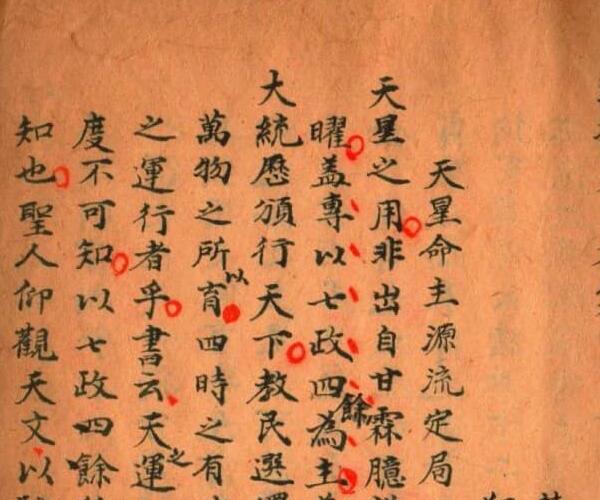 天星命主源流定局
天星之用非出自甘霖臆
曜蓋專以七政四餘為主
大統歷頒行天下教民選
萬物之所以育四時之有
之運行者乎書云天之運
度不可知以七政四餘
知也聖人仰觀天文以